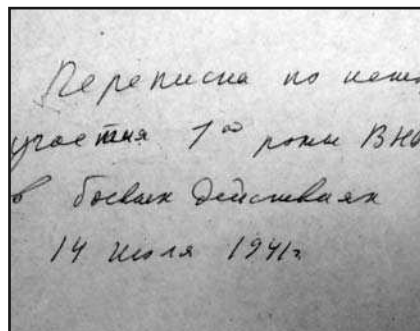 Переписка по
участия 1ой роты ВНО
в боевых действиях
14 июля 1941г.